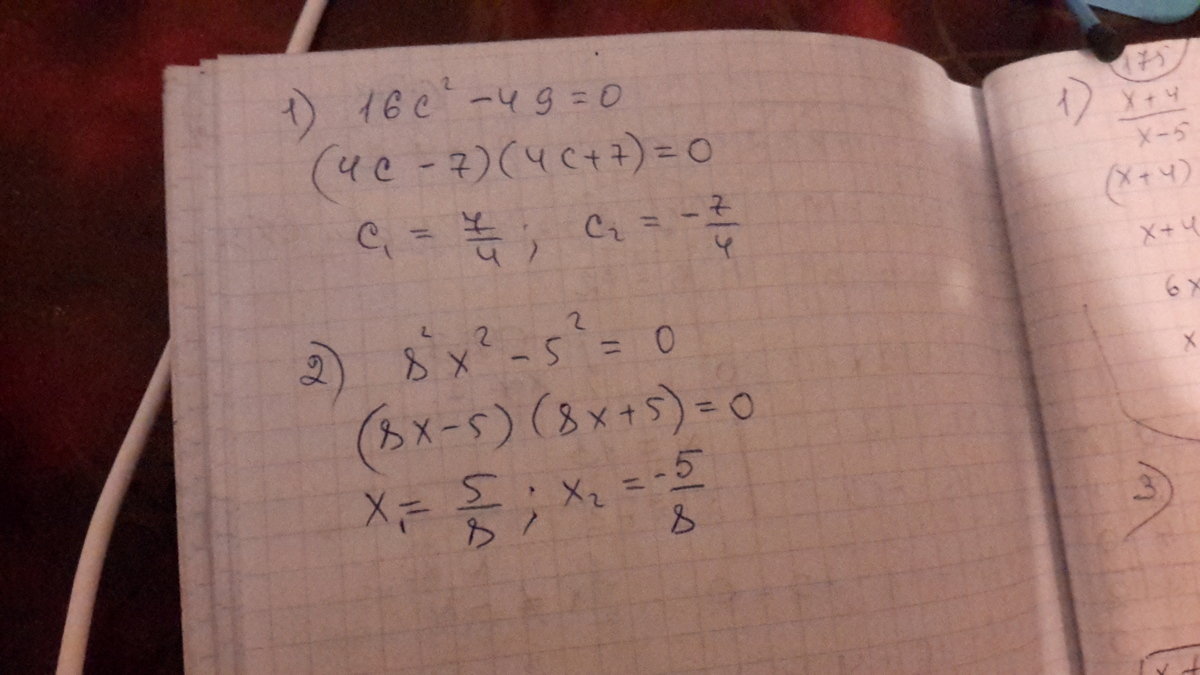 1) 16c² - 49 = 0
(4c - 7)(4c + 7) = 0
c₁ = 7/4 ; c₂ = -7/4
2) 8²x² - 5² = 0
(8x - 5) (8x + 5) = 0
x₁ = 5/8 ; x₂ = -5/8
175
1) x + 4 / x - 5
(x + 4)
x + 4
6x
x
3)